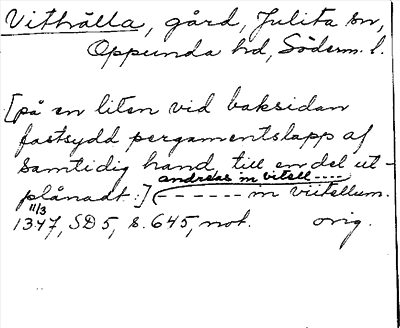 Vithälla, gård, Julita sn,
Oppunda hd, Söderm. l.
[på en liten vid baksidan
fastsydd pergamentslapp af
samtidig hand till en del ut-
plånadt:] (- - - - - - in viitellum.
andreas in vitell----
11/3
1347, SD 5, s. 645, not. orig.